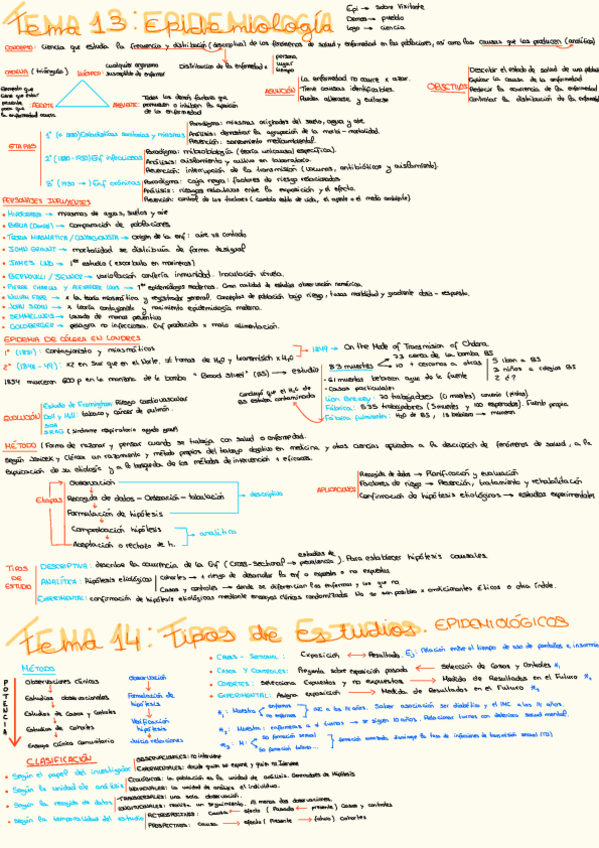 Tema 13: Epidemiología
Epi → sobre Visitante
Demos → pueblo
Logo → ciencia
CONCEPTO: ciencia que estudia la frecuencia y distribución (descriptiva) de los fenómenos de salud y enfermedad en las poblaciones, así como las causas que los producen (analítica)
persona
lugar
tiempo
CADENA (triángulo)
HUÉSPED: cualquier organismo susceptible de enfermar
Distribución de la enfermedad
AGENTE
AMBIENTE: Todos los demás factores que promueven o inhiben la aparición de la enfermedad
ASUNCIÓN
La enfermedad no ocurre x azar.
Tiene causas identificables.
Puedes alterarse y evitarse
OBJETIVOS
Describir el estado de salud de una
Explicar la causa de la enfermedad
Predecir la ocurrencia de la enfermedad
Controlar la distribución de la
ETAPAS
1ª Estadísticas sanitarias y miasmas
Paradigma: miasmas originados del suelo, agua y aire
Análisis: demostrar la agrupación de la morbi-mortalidad.
Prevención: saneamiento medioambiental.
2ª (1880-1930) Enf infecciosas
Paradigma: microbiología (teoría unicausal) específica.
Análisis: aislamiento y cultivo en laboratorio.
Prevención: interrupción de la transmisión (vacunas, antibióticos y aislamiento).
3ª (1930 → ) Enf crónicas
Paradigma: caja negra: factores de riesgo relacionados
Análisis: riesgos relativos entre la exposición y el efecto.
Prevención: control de los factores (cambio estilo de vida, el agente o el medio ambiente)
PERSONAJES INFLUYENTES
• HIPÓCRATES → miasmas de aguas, suelos y aire
• BIBLIA → comparación de poblaciones.
• TEORÍA MIASMÁTICA / CONTAGIONISTA → origen de la enf: aire vs contacto
• JOHN GRAUNT → mortalidad se distribuía de forma desigual
• JAMES LIND → 1er estudio (escorbuto en marineros)
• BERNOULLI / JENNER → variolización confería inmunidad. Inoculación viruela.
• PIERRE CHARLES y ALEXANDRE LOUIS → 1er epidemiólogos modernos. Gran cantidad de estudios observación numérica.
• WILLIAM FARR → x la teoría miasmática y registrador general. Conceptos de población bajo riesgo, tasas morbilidad y gradiente dosis-respuesta.
• JOHN SNOW → x teoría contagionista y nacimiento epidemiología moderna.
• SEMMELWEIS → lavado de manos
• GOLDBERGER → pelagra no infecciosa. Enf producida x mala alimentación.
EPIDEMIA DE CÓLERA EN LONDRES
1ª (1831): Contagionista y miasmáticos
2ª (1848-49): x2 en Sur que en el Norte, al tomas de H₂O y transmisión x H₂O
1849 → On the Mode of Transmision of Cholera
1854 mueren 600 p en la manzana de la bomba "Broad Street" (BS) → estudio
concluyó que el H₂O de BS estaba contaminada
83 muertes
73 cerca de la bomba BS
10 + cercanos a otras
5 iban a BS
3 niños = colegio BS
2 ¿?
- 61 muertes bebieron agua de la fuente
- Casos particulares
Lion Brewery: 70 trabajadores (0 muertes) cerveza (gratis)
Fábrica: 535 trabajadores (5 muertes y 100 esperadas). Fuente propia
Fábrica fulminantes: H₂O de BS, 18 bebieron → mueren
EVOLUCIÓN
Estudio de Framingham Riesgo cardiovascular
Doll y Hill: tabaco y cáncer de pulmón.
SRAG (síndrome respiratorio agudo grave)
MÉTODO (Forma de razonar y pensar cuando se trabaja con salud o enfermedad.
Según Jenicek y Cléroux un razonamiento y método propios del trabajo objetivo en medicina, y otras ciencias aplicadas a la descripción de fenómenos de salud, a la
explicación de su etiología y a la búsqueda de los métodos de intervención + eficaces.
Etapas
Observación
Recogida de datos - Ordenación - tabulación
Formulación de hipótesis
descriptiva
Comprobación hipótesis
Aceptación o rechazo de h.
analítica
APLICACIONES
Recogida de datos → Planificación y evaluación
Factores de riesgo → Prevención, tratamiento y rehabilitación
Confirmación de hipótesis etiológicas → estudios experimentales
TIPOS DE ESTUDIO
DESCRIPTIVA: describe la ocurrencia de la Enf (cross-sectional → estudios de prevalencia). Para establecer hipótesis causales
ANALÍTICA: Hipótesis etiológicas
cohortes → + riesgo de desarrollar la enf o expuesto o no expuestos
Casos y controles → donde se diferencian los enfermos y los que no
EXPERIMENTAL: confirmación de hipótesis etiológicas mediante ensayos clínicos randomizados. No es son posible x condicionantes éticos u otra índole.
Tema 14: Tipos de Estudios. EPIDEMIOLÓGICOS
MÉTODO
POTENCIA
Observaciones clínicas
Estudios observacionales
Estudios de Casos y Controles
Estudios de Cohortes
Ensayo Clínico Comunitario
Observación
Formulación de hipótesis
Verificación hipótesis
Juicio relaciones
• CROSS-SECTIONAL: Exposición ↔ Resultado. Ej: Relación entre el tiempo de uso de pantallas e insomnio
• CASOS Y CONTROLES: Pregunta sobre exposición pasada ← Selección de Casos y Controles *1
• COHORTES: selecciona Expuestos y no expuestos → Medida de Resultados en el Futuro *2
• EXPERIMENTAL: Asigna exposición → Medida de Resultados en el Futuro *3
*1: Muestra
enfermos
no enfermos
IMC a los 14 años. Saber asociación ser diabético y el IMC a los 14 años.
*2: Muestra: enfermeras a 4 turnos → se siguen 10 años. Relacionar turnos con deterioro salud mental.
*3: H:
50 formación sexual
50 formación tabaco...
formación aumentada disminuye la tasa de infecciones de transmisión sexual (ITS)
CLASIFICACIÓN
• Según el papel del investigador
OBSERVACIONALES: no interviene
EXPERIMENTALES: decide quién se expone y quién no. Interviene
• Según la unidad de análisis
ECOLÓGICOS: la población es la unidad de análisis. Generadores de Hipótesis
INDIVIDUALES: la unidad de análisis el individuo.
• Según la recogida de datos
TRANSVERSALES: una sola observación.
LONGITUDINALES: realiza un seguimiento. Al menos dos observaciones.
• Según la temporalidad del estudio
RETROSPECTIVOS: Causa ← efecto (Pasado ← presente) Casos y controles
PROSPECTIVOS: Causa → efecto (Presente → futuro) cohortes